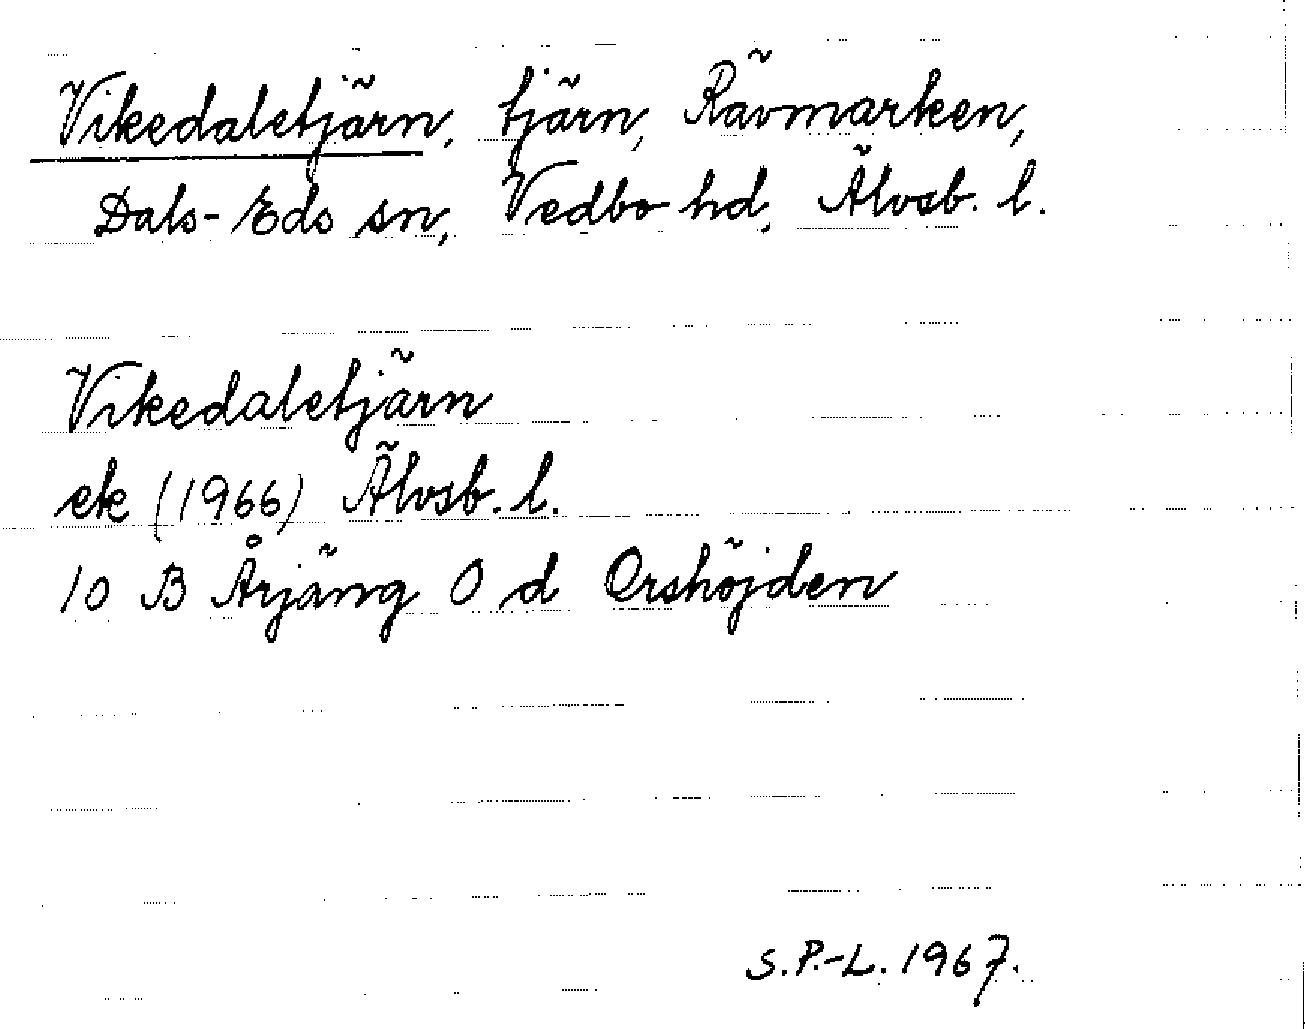 Vikedaletjärn, tjärn, Rävmarken,
Dals-Eds sn, Vedbo hd, Älvsb. l.
Vikedaletjärn
ek (1966) Älvsb. l.
10 B Årjäng 0 d Orshöjden
S.P.-L. 1967.